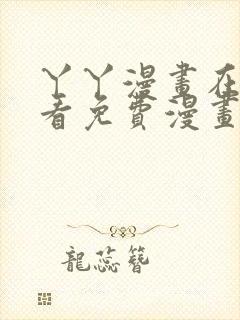 丫丫漫畫在
看免費漫畫
龍蕊簪